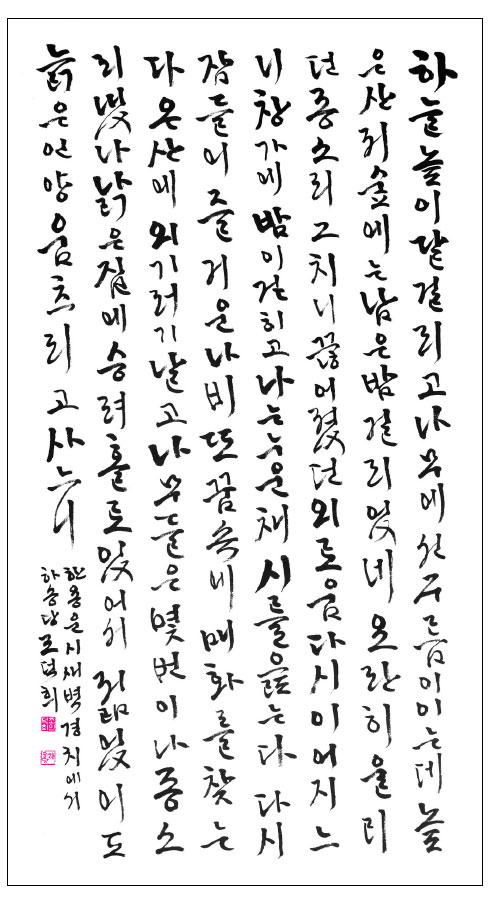 하늘 높이 달 걸리고 나무에선 구름이 이는데 높
은 산 뒤 숲에는 남은 밤 걸리었네 요란히 울리
던 종소리 그치니 끊어졌던 외로움 다시 이어지느
니 창가에 밤이 걷히고 나는 누운 채 시를 읊는다 다시
잠들어 즐거운 나비 또 꿈속에 매화를 찾는
다 온 산에 외기러기 날고 나무들은 몇 번이나 종소
리 낡은 집에 승려 홀로 있어서 젊었어도
늙은인양 움츠리고 사느니
한용운 시 새벽 경치에서
하송당 조덕희